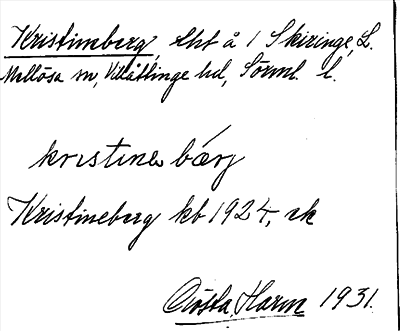 Kristineberg, lht å 1 Skiringe, L.
Mellösa sn, Villåttinge hd, Sörml. l.
kristinebærj
Kristineberg kb 1924, ek
Gösta Harm 1931.